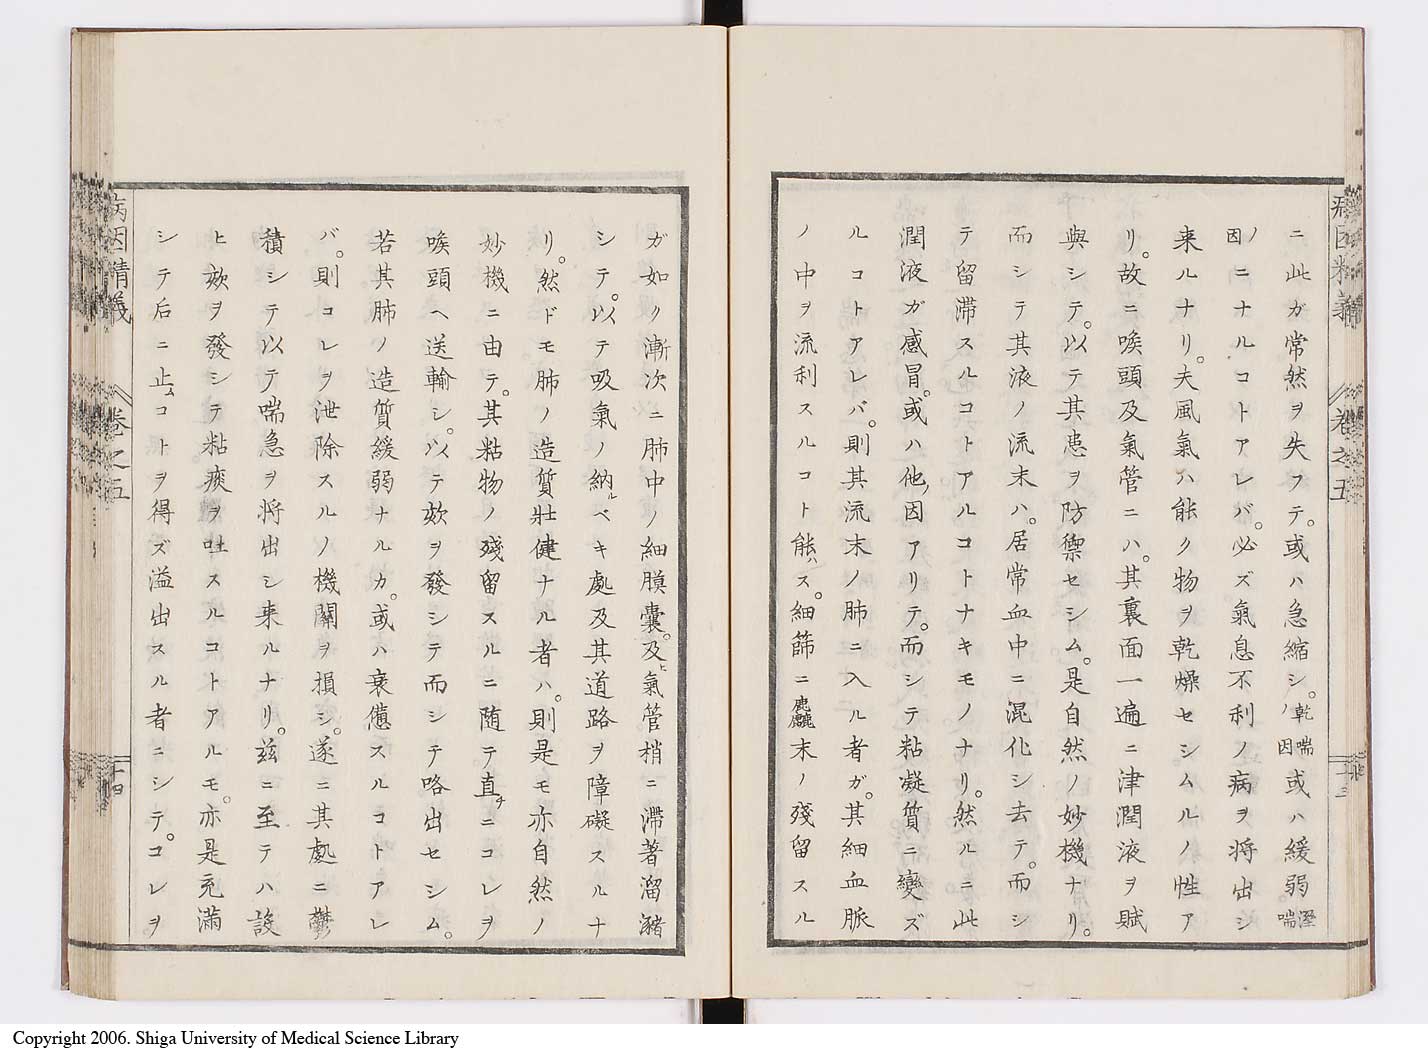 病因精義 卷之五 十三
ニ此ガ常然ヲ失フテ。或ハ急縮シ。乾喘ノ因或ハ緩弱溼喘
ノ因ニナルコトアレバ。必ズ氣息不利ノ病ヲ將出シ
来ルナリ。夫風氣ハ能ク物ヲ乾燥セシムルノ性ア
リ。故ニ喉頭及氣管ニハ。其裏面一遍ニ津潤液ヲ賦
與シテ。以テ其患ヲ防禦セシム。是自然ノ妙機ナリ。
而シテ其液ノ流末ハ。居常血中ニ混化シ去テ。而シ
テ留滞スルコトアルコトナキモノナリ。然ルニ此
潤液ガ感冒。或ハ他ノ因アリテ。而シテ粘凝質ニ變ズ
ルコトアレバ。則其流末ノ肺ニ入ル者ガ。其細血脈
ノ中ヲ流利スルコト能ハズ。細篩ニ麤末ノ殘留スル
ガ如ク漸次ニ肺中ノ細膜囊。及ヒ氣管梢ニ滯著溜瀦
シテ。以テ吸氣ノ納ルベキ處及其道路ヲ障礙スルナ
リ。然ドモ肺ノ造質壯健ナル者ハ。則是モ亦自然ノ
妙機ニ由テ。其粘物ノ殘留スルニ随テ直チニコレヲ
喉頭ヘ送輸シ。以テ欬ヲ發シテ而シテ咯出セシム。
若其肺ノ造質緩弱ナルカ。或ハ衰憊スルコトアレ
バ。則コレヲ泄除スルノ機關ヲ損シ。遂ニ其處ニ鬱
積シテ以テ喘急ヲ將出シ来ルナリ。茲ニ至テハ設
ヒ欬ヲ發シテ粘痰ヲ吐スルコトアルモ。亦是充滿
シテ后ニ止ムコトヲ得ズ溢出スル者ニシテ。コレヲ
病因精義 卷之五 十四
Copyright 2006. Shiga University of Medical Science Library